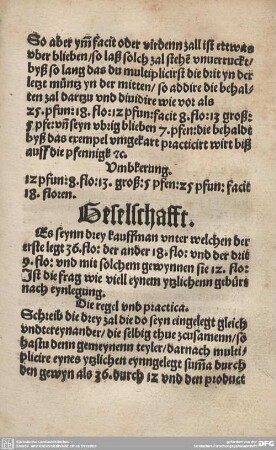 So aber ym̃ facit oder virdenn zall ist ettwas
vber blieben/so laß solch zal stehẽ vnuerruckt/
byß so lang das du multiplicirst die drit yn der
letzt müntz yn der mitten/so addire die behal-
ten zal dartzu vnd diuidire wie vor als
25.pfun:18.flo:12 pfun:facit 8.flo:13 groß:
5 pfe:vñ seyn vbrig blieben 7.pfen:die behaldt
byß das exempel vmgekart practicirt wirt biß
auff die pfennigk ꝛc.
Vmbkerung.
12 pfun:8.flo:13.groß:5 pfen:25 pfun:facit
18.floren.
Geselschafft.
Es seynn drey kauffman vnter welchen der
erste legt 36.flo:der ander 18.flo:vnd der drit
9.flo:vnd mit solchem gewynnen sie 12.flo:
Ist die frag wie viell eynem ytzlichenn gebürt
nach eynlegung.
Die regel vnd practica.
Schreib die drey zal die do seyn eingelegt gleich
vndtereynander/die selbig thue zcusamenn/so
hastu denn gemeynenn teyler/darnach multi-
plicire eynes ytzlichen eynngelegte sum̃a durch
den gewyn als 36.durch 12 vnd den product